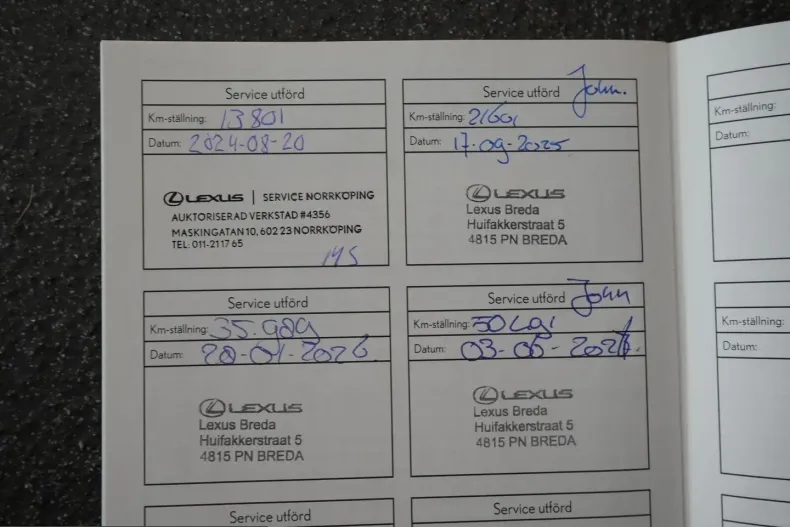 Service utförd
Km-ställning: 13801
Datum: 2024-08-20
LEXUS | SERVICE NORRKÖPING
AUKTORISERAD VERKSTAD #4356
MASKINGATAN 10, 602 23 NORRKÖPING
TEL: 011-2117 65
Service utförd John.
Km-ställning:
Datum: 17-09-2025
LEXUS
Lexus Breda
Huifakkerstraat 5
4815 PN BREDA
Service utförd
Km-ställning: 35.989
Datum:
LEXUS
Lexus Breda
Huifakkerstraat 5
4815 PN BREDA
Service utförd John
Km-ställning:
Datum:
LEXUS
Lexus Breda
Huifakkerstraat 5
4815 PN BREDA
Service utförd
Service utförd
Km-ställning:
Datum:
Km-ställning:
Datum: